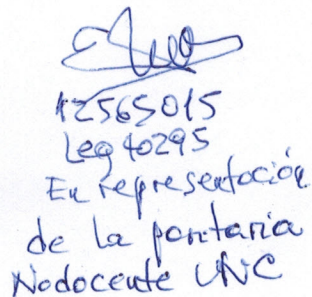 12565015
Leg 40295
En representación
de la paritaria
Nodocente UNC